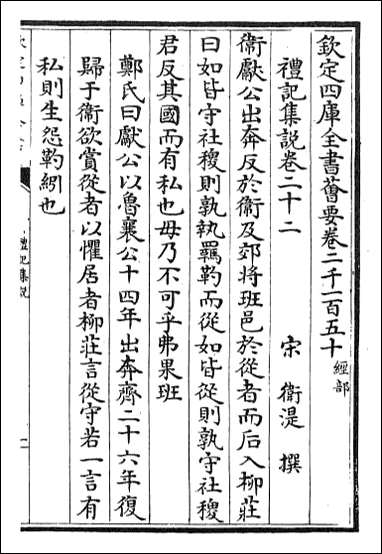 欽定四庫全書薈要卷二千一百五十 經部
禮記集說卷二十二
宋 衛湜 撰
衛獻公出奔反於衛及郊將班邑於從者而后入柳莊
曰如皆守社稷則孰執羈靮而從如皆從則孰守社稷
君反其國而有私也毋乃不可乎弗果班
鄭氏曰獻公以魯襄公十四年出奔齊二十六年復
歸于衛欲賞從者以懼居者柳莊言從守若一言有
私則生怨靮紖也
禮記集說